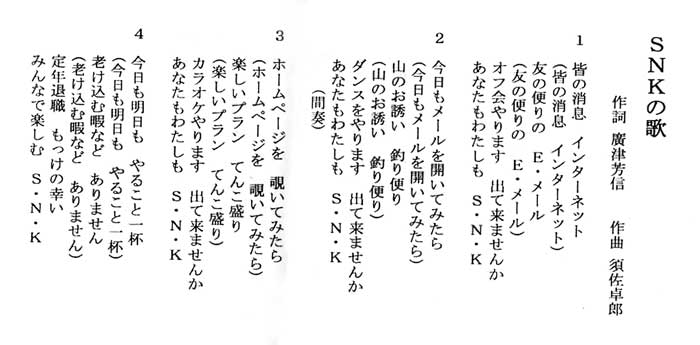 SNKの歌
作詞 廣津芳信 作曲 須佐卓郎
1 皆の消息 インターネット
(皆の消息 インターネット)
友の便りの E・メール
(友の便りの E・メール)
オフ会やります 出て来ませんか
あなたもわたしも S・N・K
2 今日もメールを開いてみたら
(今日もメールを開いてみたら)
山のお誘い 釣り便り
(山のお誘い 釣り便り)
ダンスをやります 出て来ませんか
あなたもわたしも S・N・K
(間奏)
3 ホームページを 覗いてみたら
(ホームページを 覗いてみたら)
楽しいプラン てんこ盛り
(楽しいプラン てんこ盛り)
カラオケやります 出て来ませんか
あなたもわたしも S・N・K
4 今日も明日も やること一杯
(今日も明日も やること一杯)
老け込む暇など ありません
(老け込む暇など ありません)
定年退職 もっけの幸い
みんなで楽しむ S・N・K